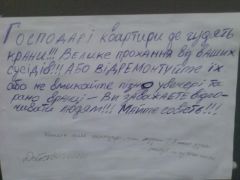 Господарі квартири де гудять
крани!!! Велике прохання від ваших
сусідів!! Або відремонтуйте їх
або не вмикайте пізно увечері та
рано вранці – Ви заважаєте відпо-
чивати людям!!! Майте совість!!!